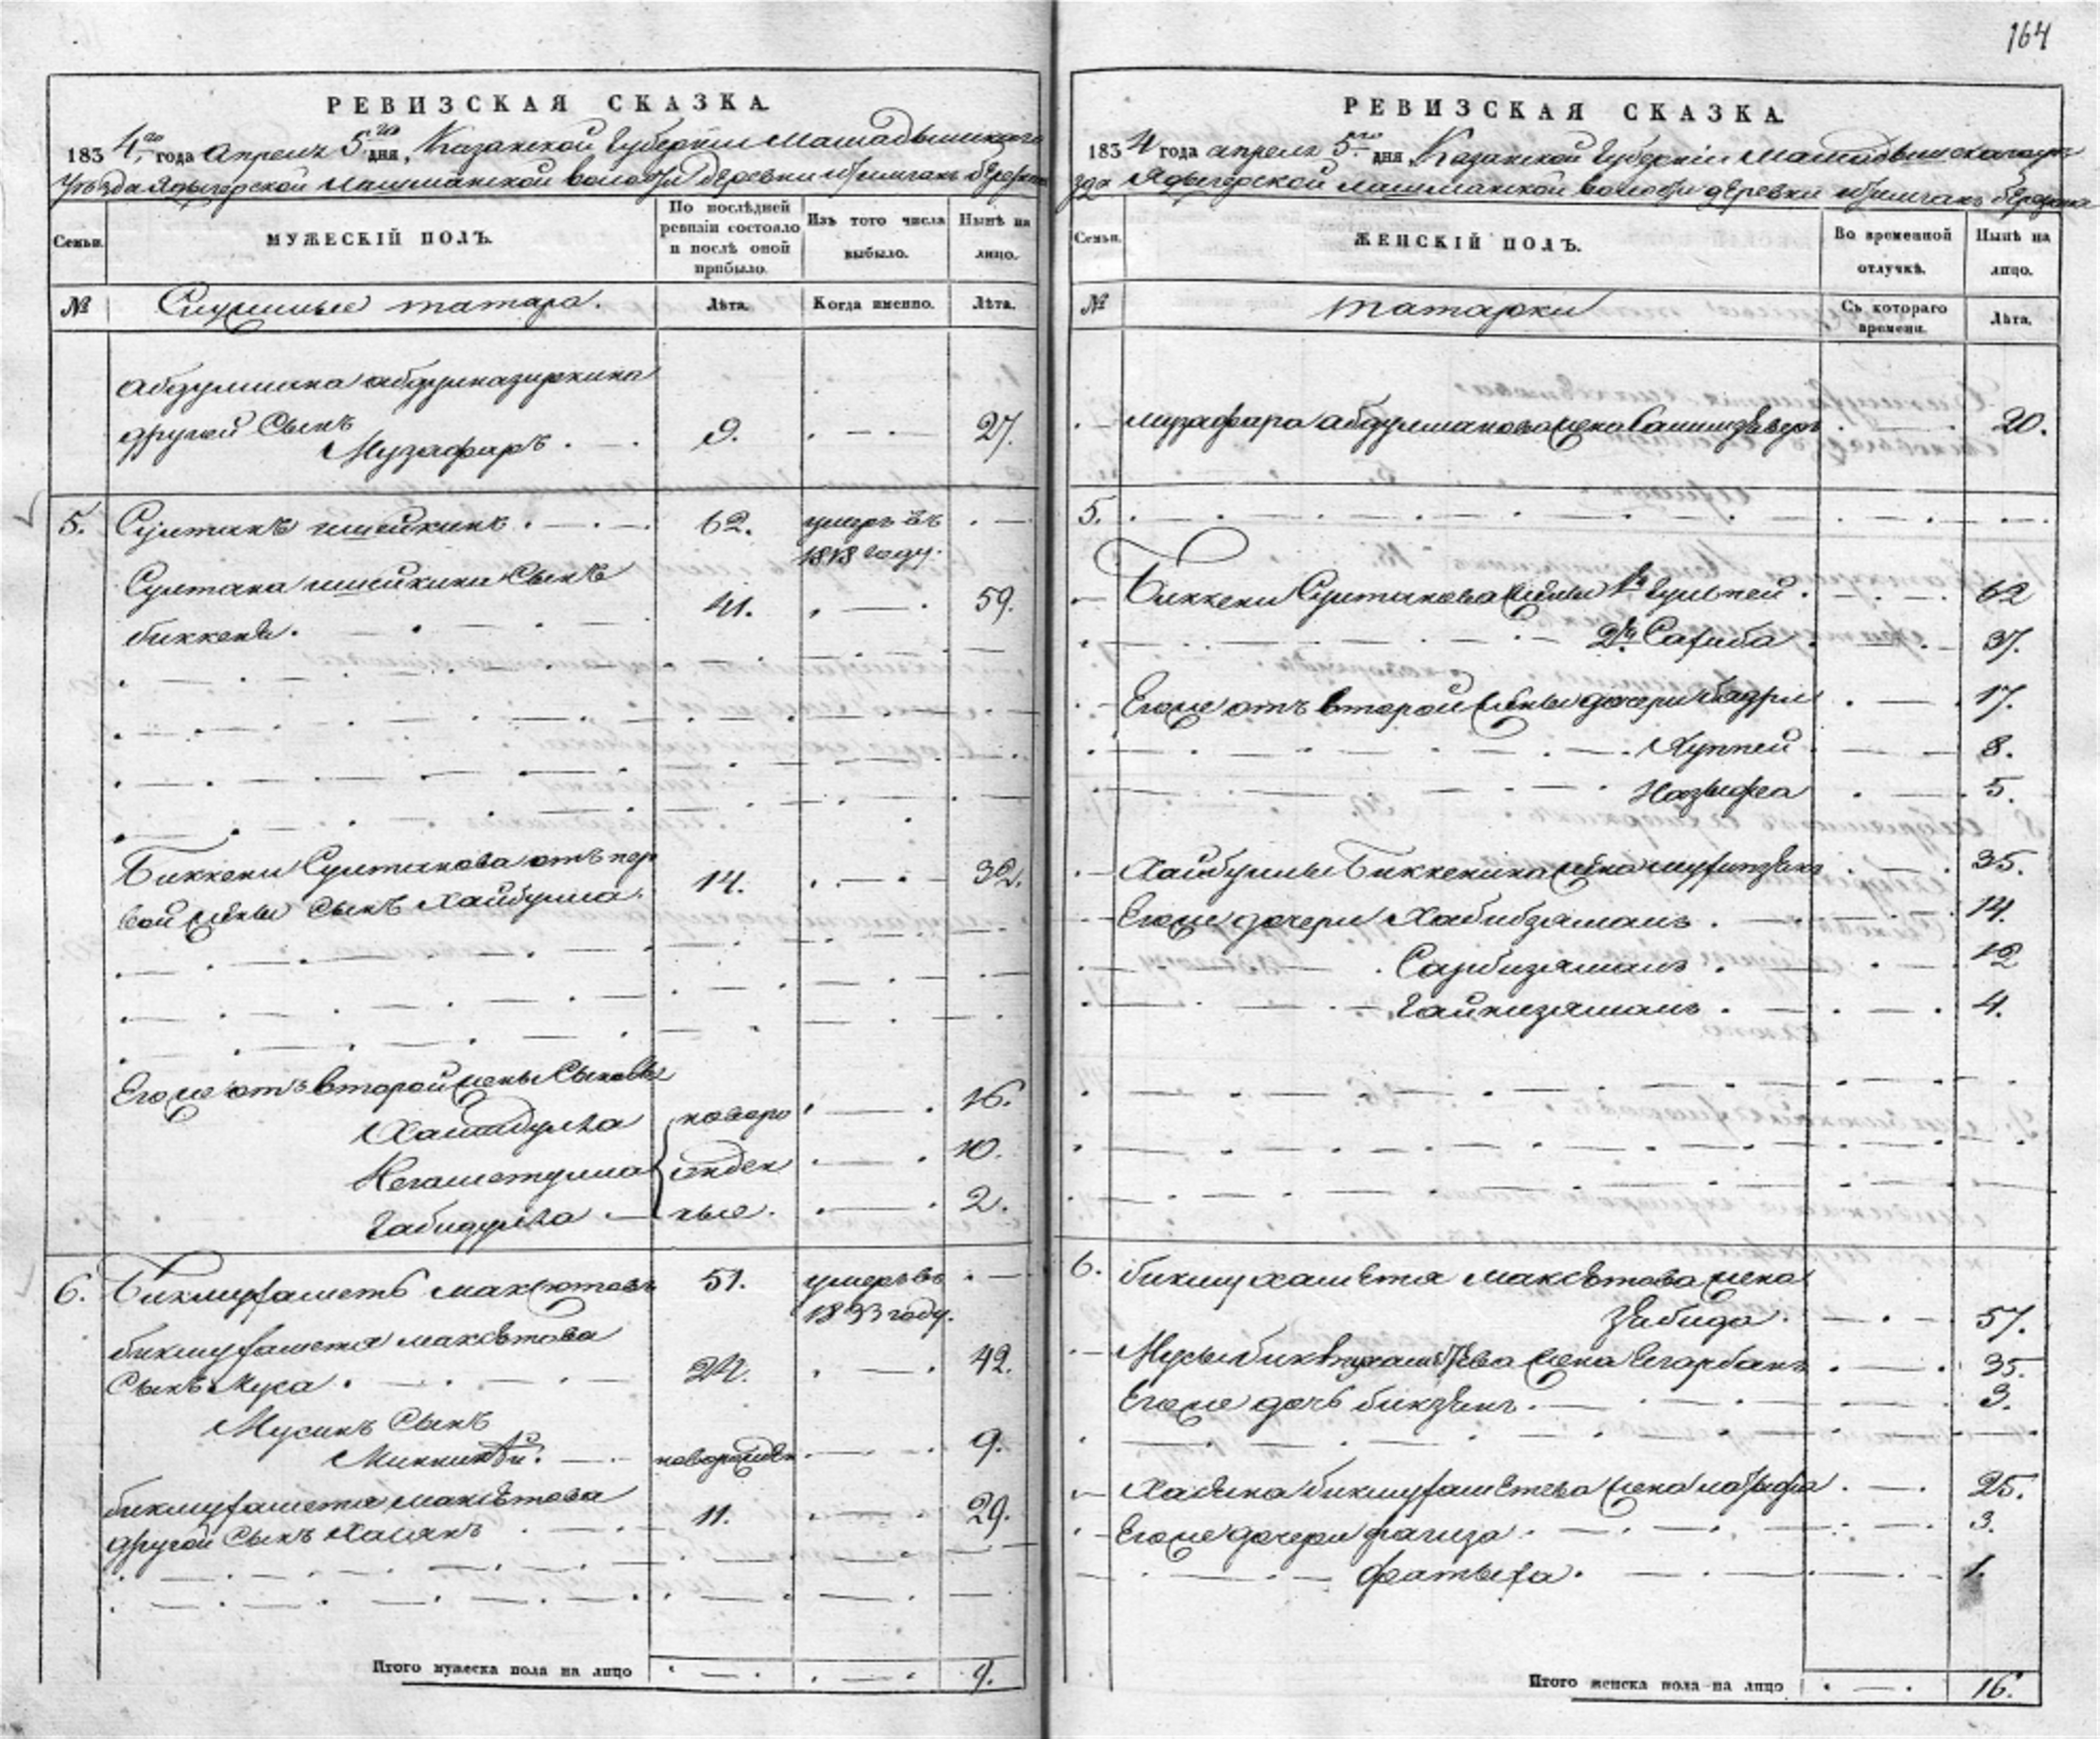 164
РЕВИЗСКАЯ СКАЗКА.
1834го года апреля 5го дня, Казанской Губернии Мамадышскаго
уезда Ядыгерской лашманской волости деревни
Семьи.
МУЖЕСКІЙ ПОЛЪ.
По послѣдней ревизіи состояло и послѣ оной прибыло.
Изъ того числа выбыло.
Нынѣ на лицо.
№
Служилые татара.
Лѣта.
Когда именно.
Лѣта.
другой Сынъ
Музафаръ. 9. 27.
5. Султанъ ишейкинъ. 62. умеръ въ
1818 году.
Султана ишейкина Сынъ
биккеня. 41. 59.
Биккени Султанова отъ пер
вой жены Сынъ Хайбулла. 14. 32.
Егоже отъ второй жены Сыновья
новоро 16.
Негаметулла жден 10.
Габидулла ные. 2.
6. Бикмухаметь максютовъ 51. умеръ въ
1833 году.
бикмухаметя максютова
Сынъ Муса. 24. 42.
Мусинъ Сынъ
новорожден 9.
бикмухаметя максютова
другой Сынъ Хасянъ 11. 29.
Итого мужеска пола на лицо 9.
РЕВИЗСКАЯ СКАЗКА.
1834 года апреля 5го дня Казанской Губерніи Мамадышскаго уе
зда Ядыгерской лашманской волости деревни
Семьи.
ЖЕНСКІЙ ПОЛЪ.
Во временной отлучкѣ.
Нынѣ на лицо.
№
татарки
Съ котораго времени.
Лѣта.
музафара абдулманова жена 20.
5.
Биккени Султанова жены 1я Гульпей. 62
2я Сахиба. 37.
Егоже отъ второй жены дочери бадри 17.
Хуппей 8.
Назифа 5.
Хайбуллы Биккенина жена 35.
Егоже дочери Хабибзямалъ. 14.
Сарбизямалъ. 12
Гайнизямалъ. 4.
6. бикмухаметя максютова жена
Забида. 57.
Мусы бикмухаметева жена 35.
Егоже дочь бикзянъ. 3.
Хасяна бикмухаметева жена 25.
Егоже дочери фагиза. 3.
Фатыха. 1.
Итого женска пола на лицо 16.